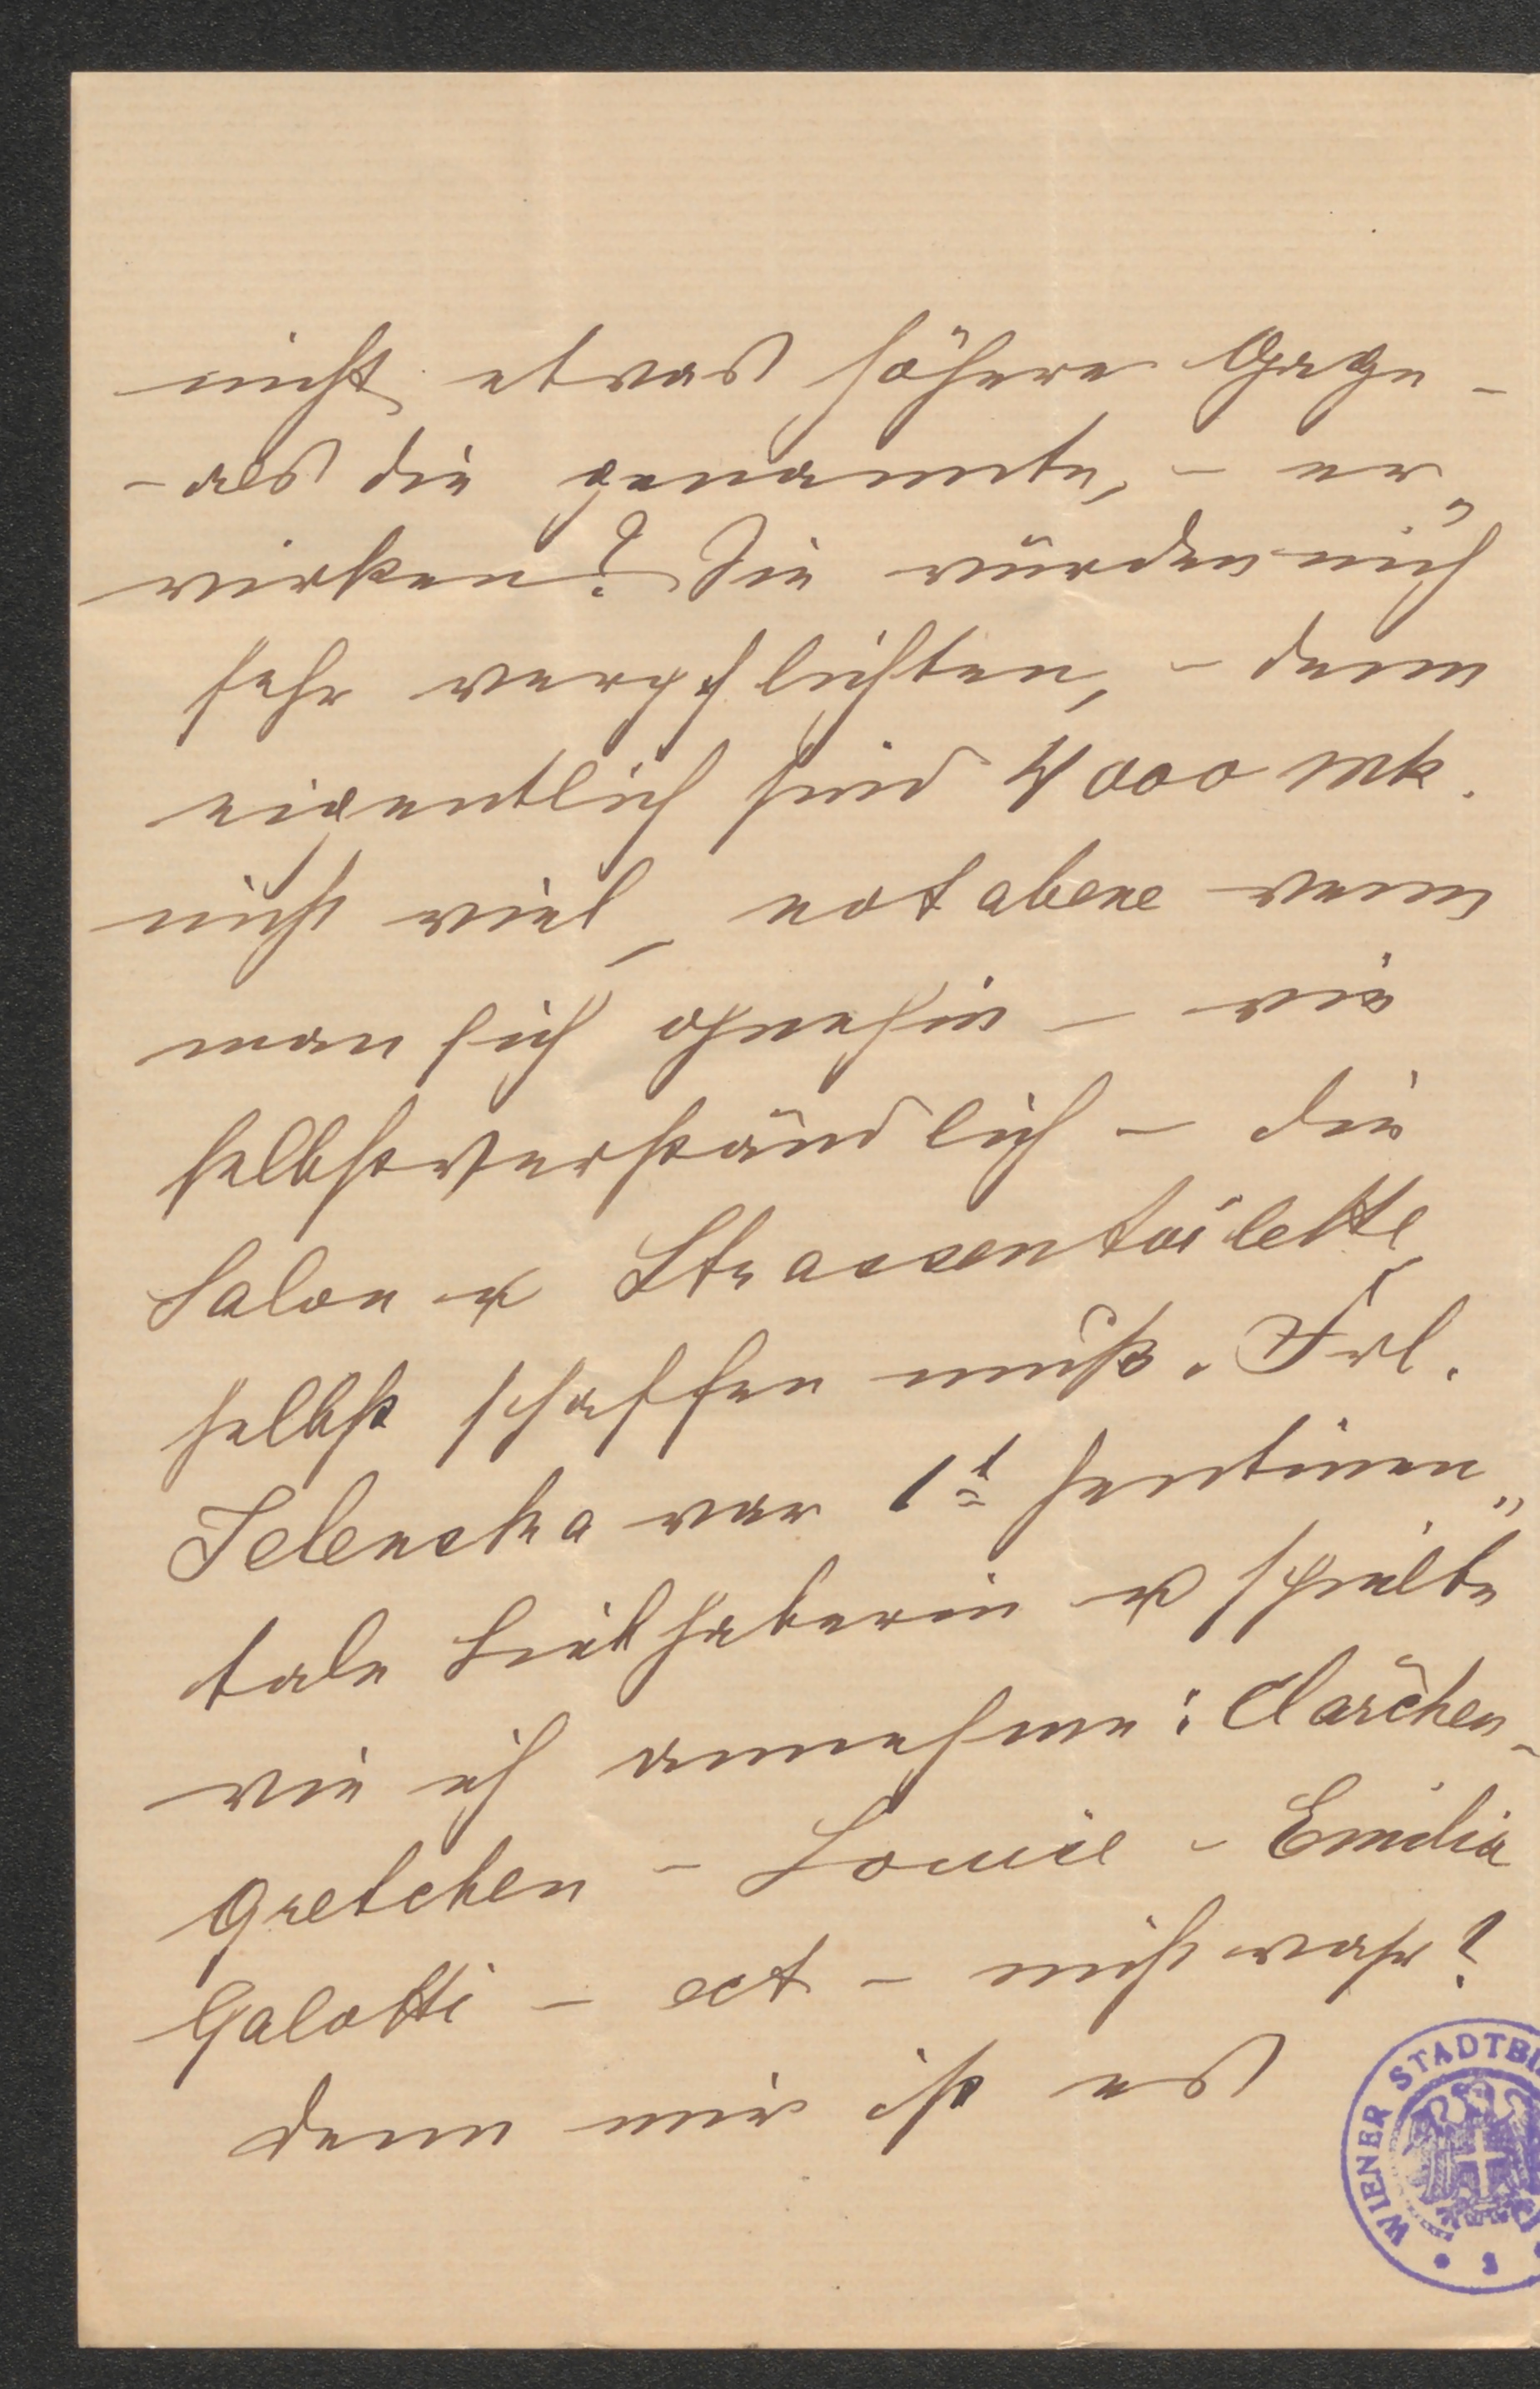 nicht etwas höhere Gage –
– als die genannte, – er„
wirken? Sie würden mich
sehr verpflichten, – denn
eigentlich sind 4000 Mk.
nicht viel, notabene wenn
man sich ohnehin – wie
selbstverständlich – die
Salon u Strassentoilette
selbst schaffen muß. Frl.
war 1t sentimen„
tale Liebhaberin u spielte
wie ich annehme: Clärchen –
Gretchen – Louise – Emilia
Galotti – ect – nicht wahr?
denn mir ist es
WIENER STADTBI